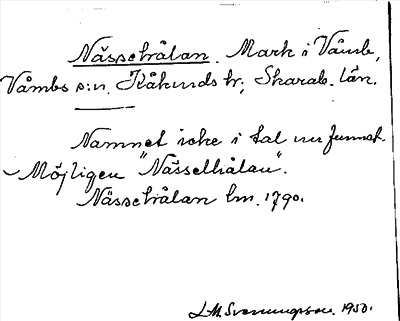 Nässetrålan. Mark i Våmb,
Våmbs s:n, Kåkinds hr, Skarab. län.
Namnet icke i tal nu funnet.
Möjligen "Nässelhålan".
Nässetrålan lm. 1790.
L.M. Svenungsson. 1950.